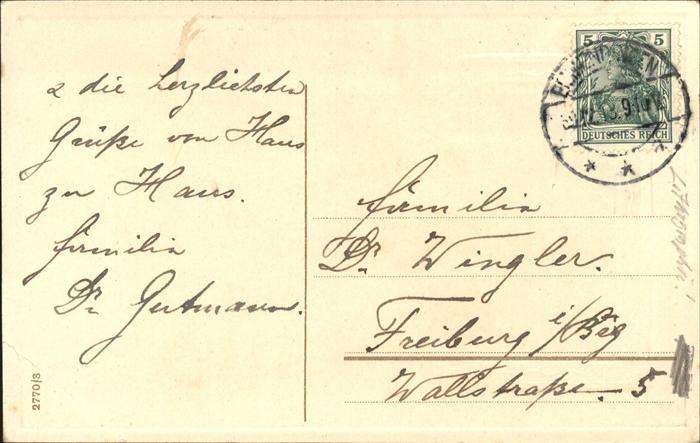 & die herzlichsten
Grüße von Haus
zu Haus.
Familie
Dr. Gutmann.
5 5
DEUTSCHES REICH
Familie
Dr. Wingler.
Freiburg i/Bg
Wallstraße. 5
2770/3